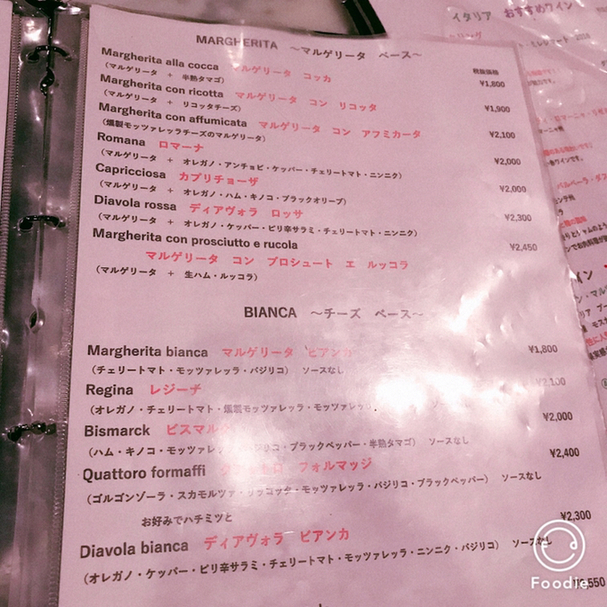 イタリア おすすめワイン
MARGHERITA ～マルゲリータ ベース～
税抜価格
Margherita alla cocca マルゲリータ コッカ ¥1,800
（マルゲリータ ＋ 半熟タマゴ）
Margherita con ricotta マルゲリータ コン リコッタ ¥1,900
（マルゲリータ ＋ リコッタチーズ）
Margherita con affumicata マルゲリータ コン アフミカータ ¥2,100
（燻製モッツァレッラチーズのマルゲリータ）
Romana ロマーナ ¥2,000
（マルゲリータ ＋ オレガノ・アンチョビ・ケッパー・チェリートマト・ニンニク）
Capricciosa カプリチョーザ ¥2,000
（マルゲリータ ＋ オレガノ・ハム・キノコ・ブラックオリーブ）
Diavola rossa ディアヴォラ ロッサ ¥2,300
（マルゲリータ ＋ オレガノ・ケッパー・ピリ辛サラミ・チェリートマト・ニンニク）
Margherita con prosciutto e rucola ¥2,450
マルゲリータ コン プロシュート エ ルッコラ
（マルゲリータ ＋ 生ハム・ルッコラ）
BIANCA ～チーズ ベース～
Margherita bianca マルゲリータ ビアンカ ¥1,800
（チェリートマト・モッツァレッラ・バジリコ） ソースなし
Regina レジーナ ¥2,100
（オレガノ・チェリートマト・燻製モッツァレッラ・モッツァレッ
Bismarck ビスマルク ¥2,000
（ハム・キノコ・モッツァレッラ・バジリコ・ブラックペッパー・半熟タマゴ） ソースなし
Quattoro formaffi フォルマッジ ¥2,400
（ゴルゴンゾーラ・スカモルツァ・リコッタ・モッツァレッラ・バジリコ・ブラックペッパー） ソースなし
お好みでハチミツと
¥2,300
Diavola bianca ディアヴォラ ビアンカ
（オレガノ・ケッパー・ピリ辛サラミ・チェリートマト・モッツァレッラ・ニンニク・バジリコ） ソースなし
Foodie